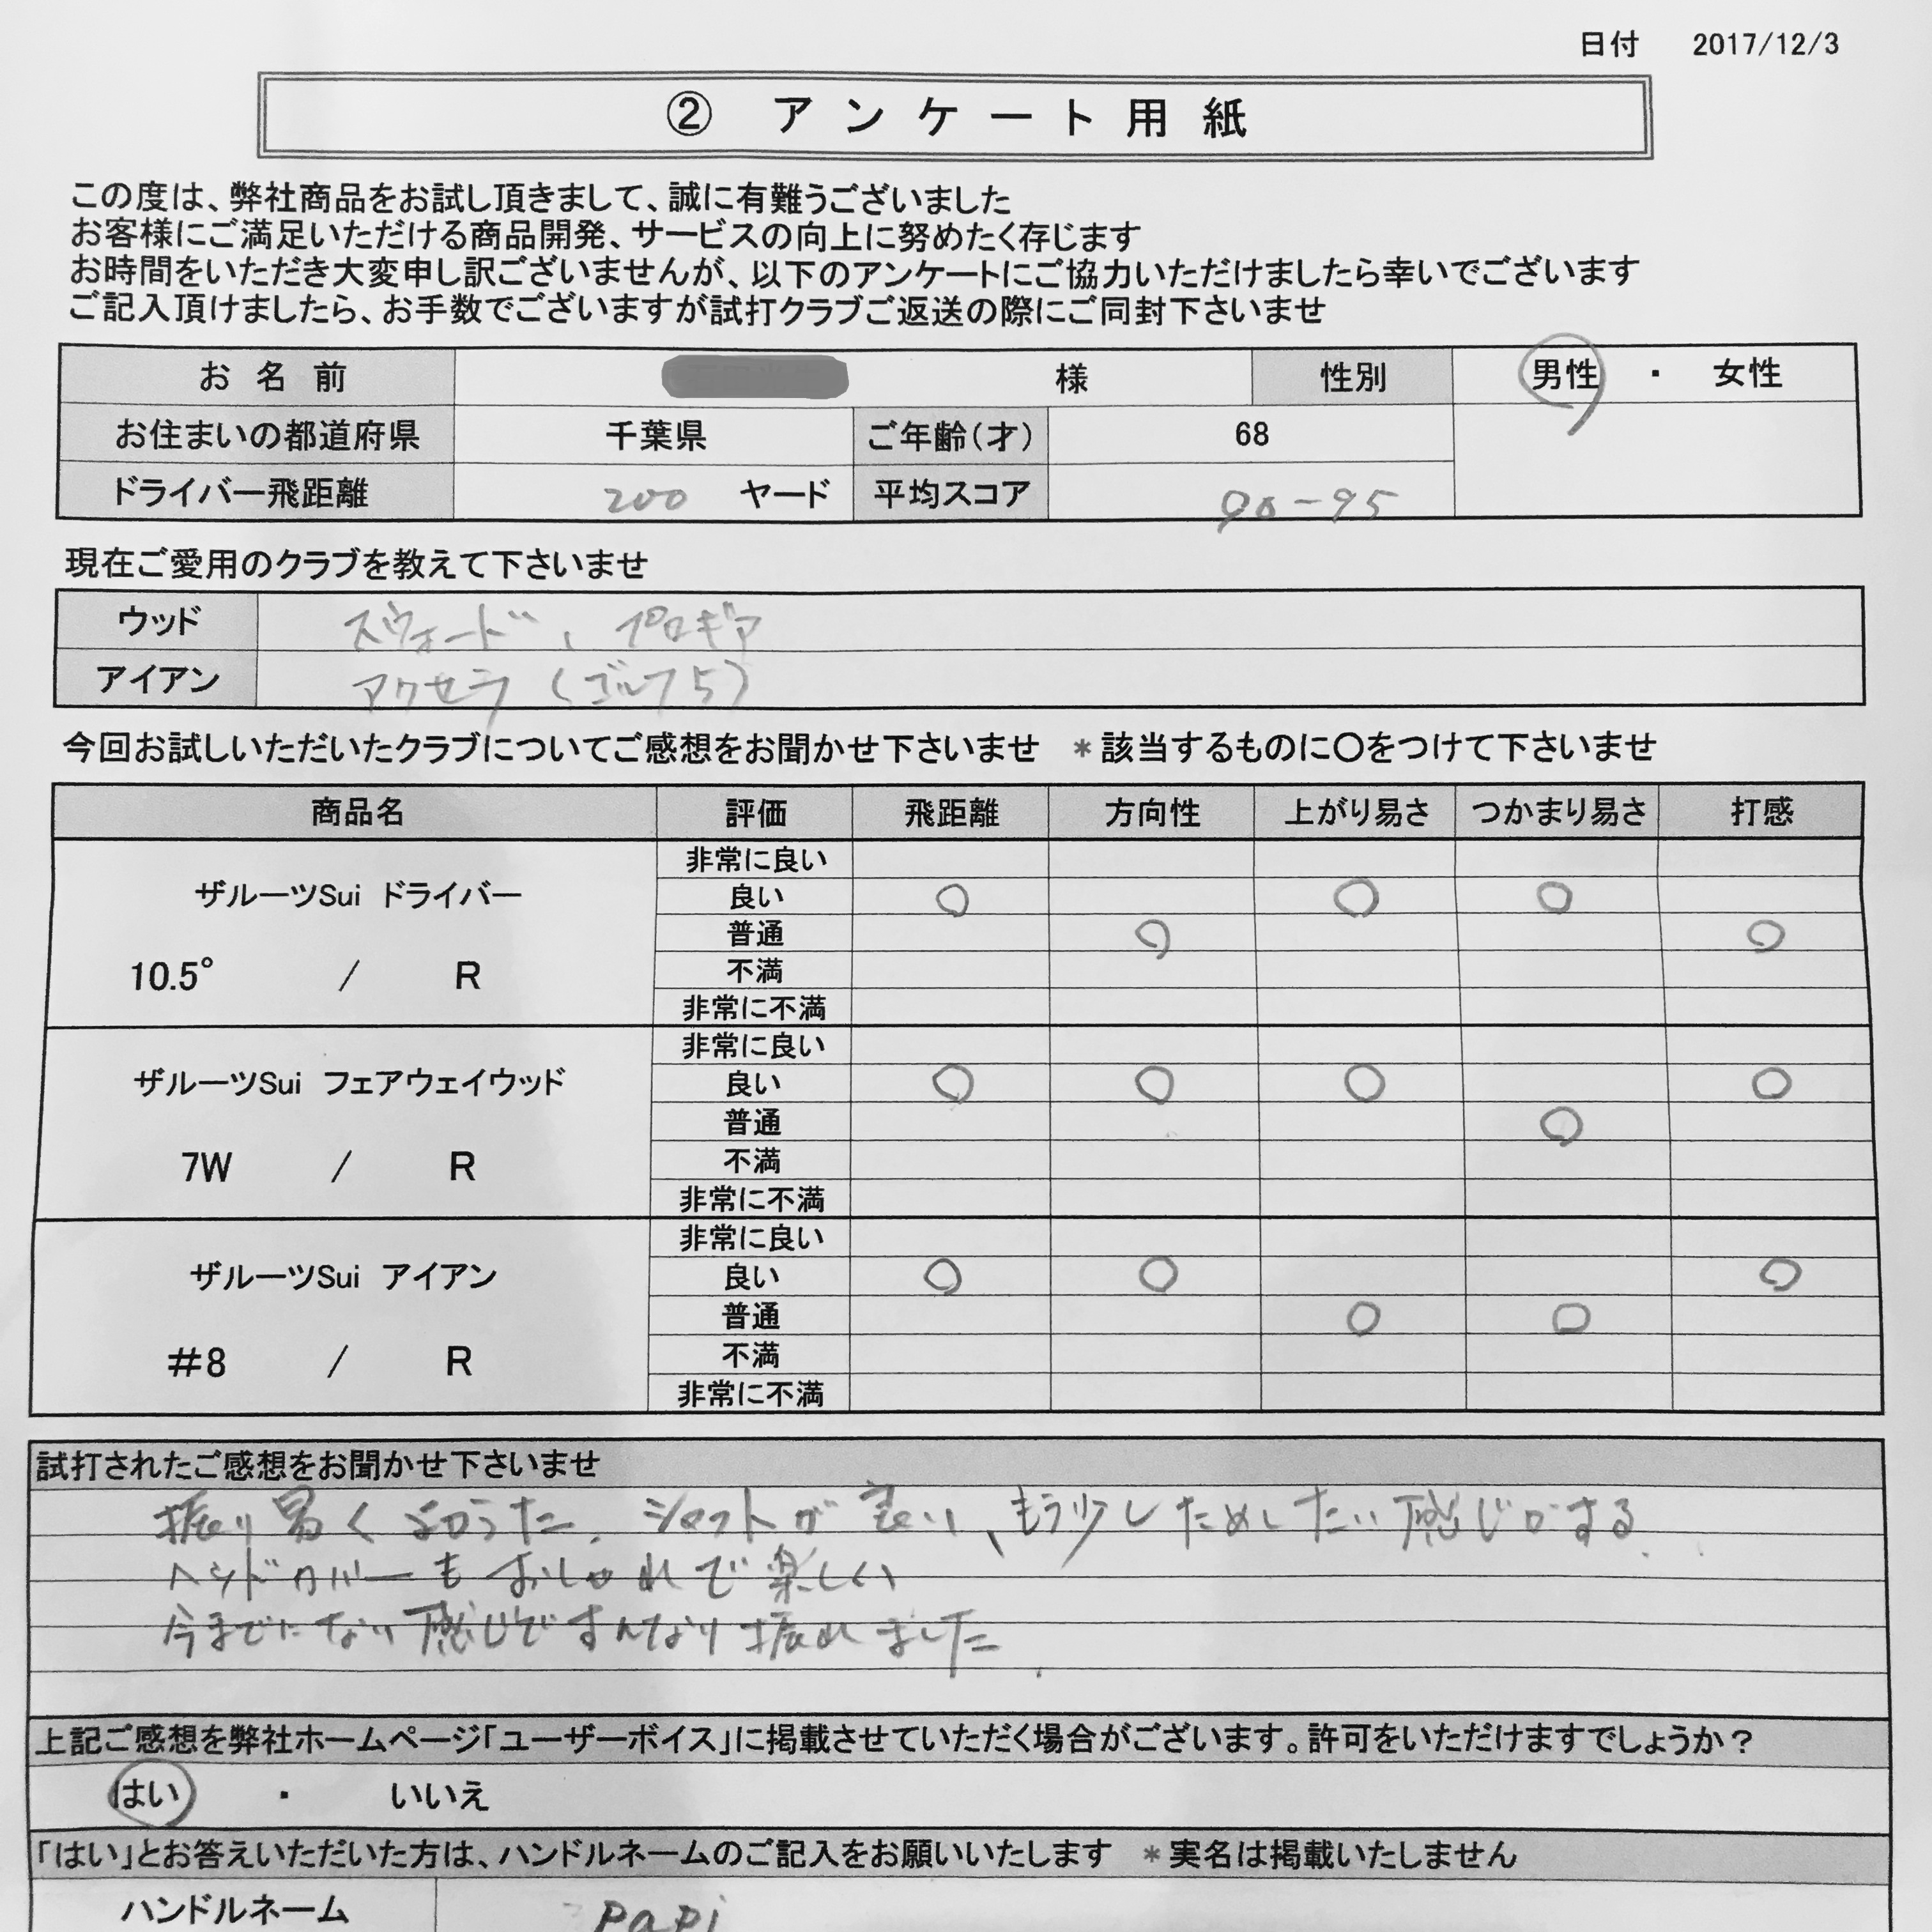 日付 2017/12/3
② アンケート用紙
この度は、弊社商品をお試し頂きまして、誠に有難うございました
お客様にご満足いただける商品開発、サービスの向上に努めたく存じます
お時間をいただき大変申し訳ございませんが、以下のアンケートにご協力いただけましたら幸いでございます
ご記入頂けましたら、お手数でございますが試打クラブご返送の際にご同封下さいませ
お名前 様 性別 男性 ・ 女性
お住まいの都道府県 千葉県 ご年齢(才) 68
ドライバー飛距離 200 ヤード 平均スコア 90-95
現在ご愛用のクラブを教えて下さいませ
ウッド スウォード、プロギア
アイアン アクセラ(ゴルフ5)
今回お試しいただいたクラブについてご感想をお聞かせ下さいませ *該当するものに〇をつけて下さいませ
商品名 評価 飛距離 方向性 上がり易さ つかまり易さ 打感
ザルーツSui ドライバー
10.5° / R
非常に良い
良い 〇 〇 〇
普通 〇 〇
不満
非常に不満
ザルーツSui フェアウェイウッド
7W / R
非常に良い
良い 〇 〇 〇 〇
普通 〇
不満
非常に不満
ザルーツSui アイアン
#8 / R
非常に良い
良い 〇 〇 〇
普通 〇 〇
不満
非常に不満
試打されたご感想をお聞かせ下さいませ
振り易くよかった。シャフトが良い、もう少しためしたい感じがする。
ヘッドカバーもおしゃれで楽しい
今までにない感じですんなり振れました。
上記ご感想を弊社ホームページ「ユーザーボイス」に掲載させていただく場合がございます。許可をいただけますでしょうか?
はい ・ いいえ
「はい」とお答えいただいた方は、ハンドルネームのご記入をお願いいたします *実名は掲載いたしません
ハンドルネーム papi